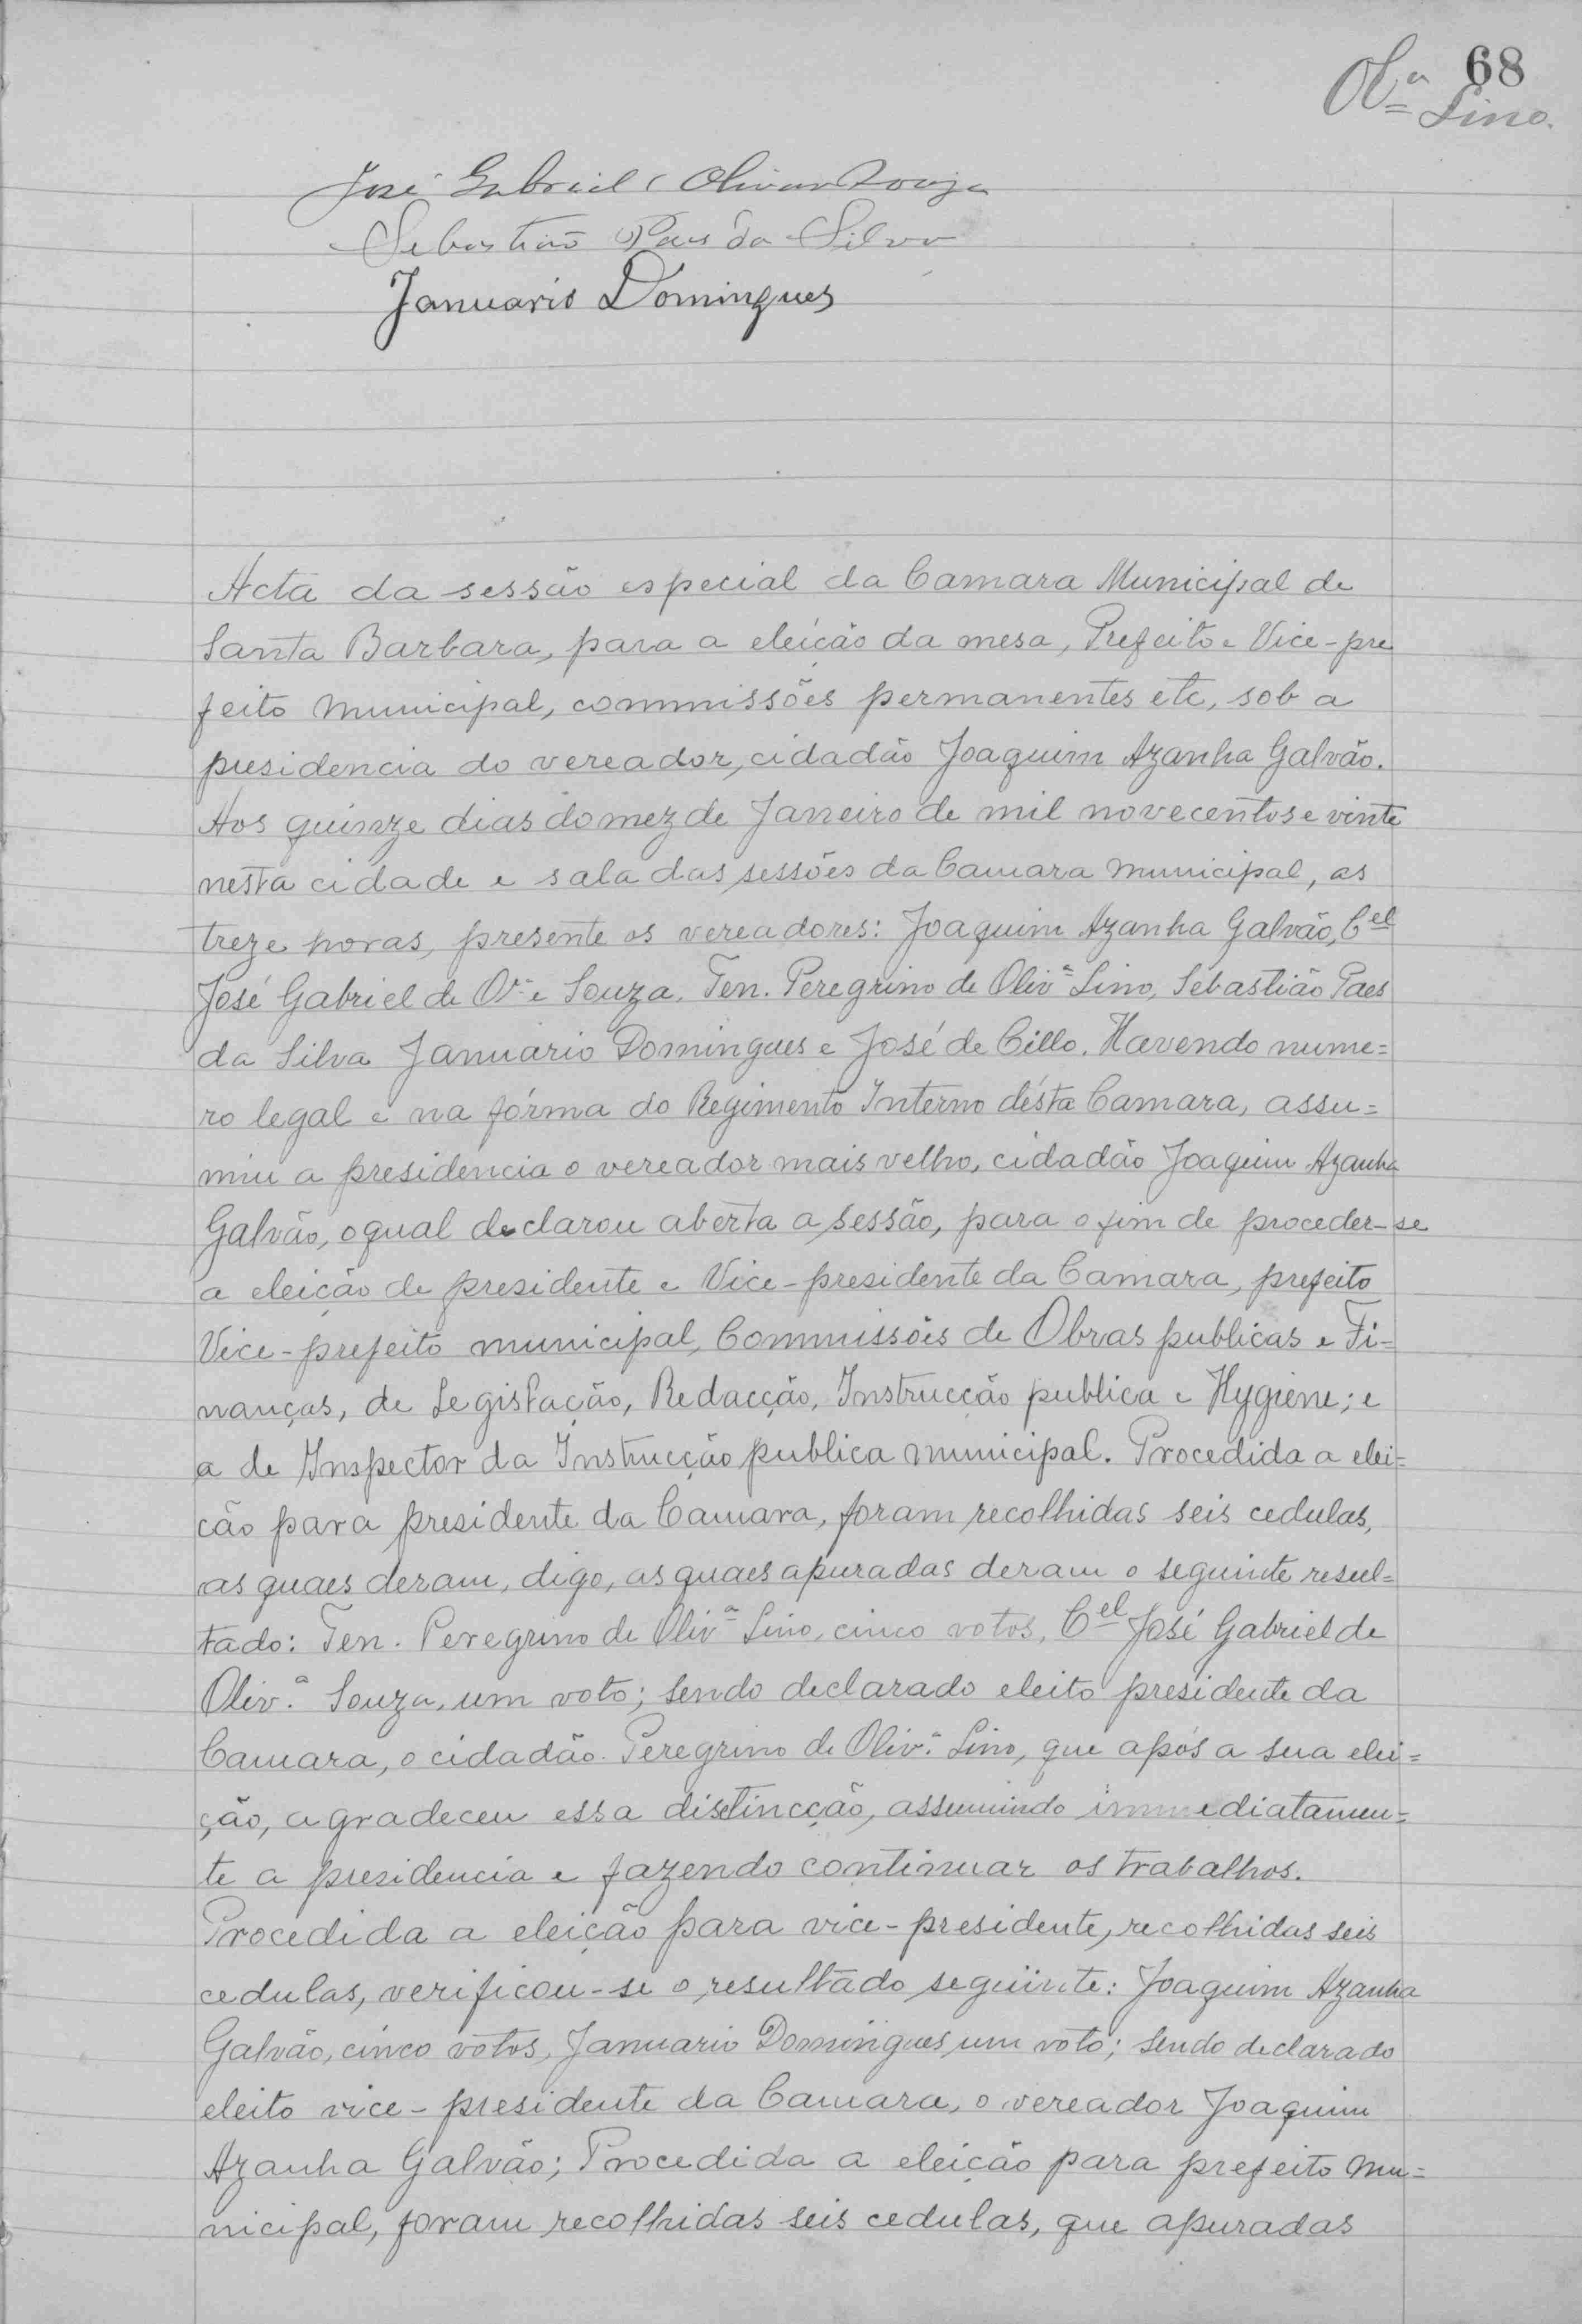 68
Ol.ª Lino.
José Gabriel Oliveira Souza
Sebastião Paes da Silva
Januario Domingues
Acta da sessão especial da Camara Municipal de
Santa Barbara, para a eleição da mesa, Prefeito e Vice-pre
feito municipal, commissões permanentes etc, sob a
presidencia do vereador, cidadão Joaquim Azanha Galvão.
Aos quinze dias do mez de Janeiro de mil novecentos e vinte
nesta cidade e sala das sessões da Camara Municipal, as
treze horas, presente os vereadores: Joaquim Azanha Galvão, Cel
José Gabriel de Olª e Souza, Ten. Peregrino de Olivª Lino, Sebastião Paes
da Silva Januario Domingues e José de Cillo. Havendo nume=
ro legal e na fórma do Regimento Interno désta Camara, assu=
miu a presidencia o vereador mais velho, cidadão Joaquim Azanha
Galvão, o qual declarou aberta a sessão, para o fim de proceder-se
a eleição de presidente e Vice-presidente da Camara, prefeito
Vice-prefeito municipal, Commissões de Obras publicas e Fi=
nanças, de Legislação, Redacção, Instrucção publica e Hygiene; e
a de Inspector da Instrucção publica municipal. Procedida a elei=
cão para presidente da Camara, foram recolhidas seis cedulas,
as quaes deram, digo, as quaes apuradas deram o seguinte resul=
tado: Ten. Peregrino de Olivª Lino, cinco votos, Cel José Gabriel de
Oliv.ª Souza, um voto; sendo declarado eleito presidente da
Camara, o cidadão Peregrino de Oliv.ª Lino, que após a sua elei=
ção, agradeceu essa distincção, assumindo immediatamen=
te a presidencia e fazendo continuar os trabalhos.
Procedida a eleição para vice-presidente, recolhidas seis
cedulas, verificou-se o resultado seguinte: Joaquim Azanha
Galvão, cinco votos, Januario Domingues um voto; sendo declarado
eleito vice-presidente da Camara, o vereador Joaquim
Azanha Galvão; Procedida a eleição para prefeito mu=
nicipal, foram recolhidas seis cedulas, que apuradas